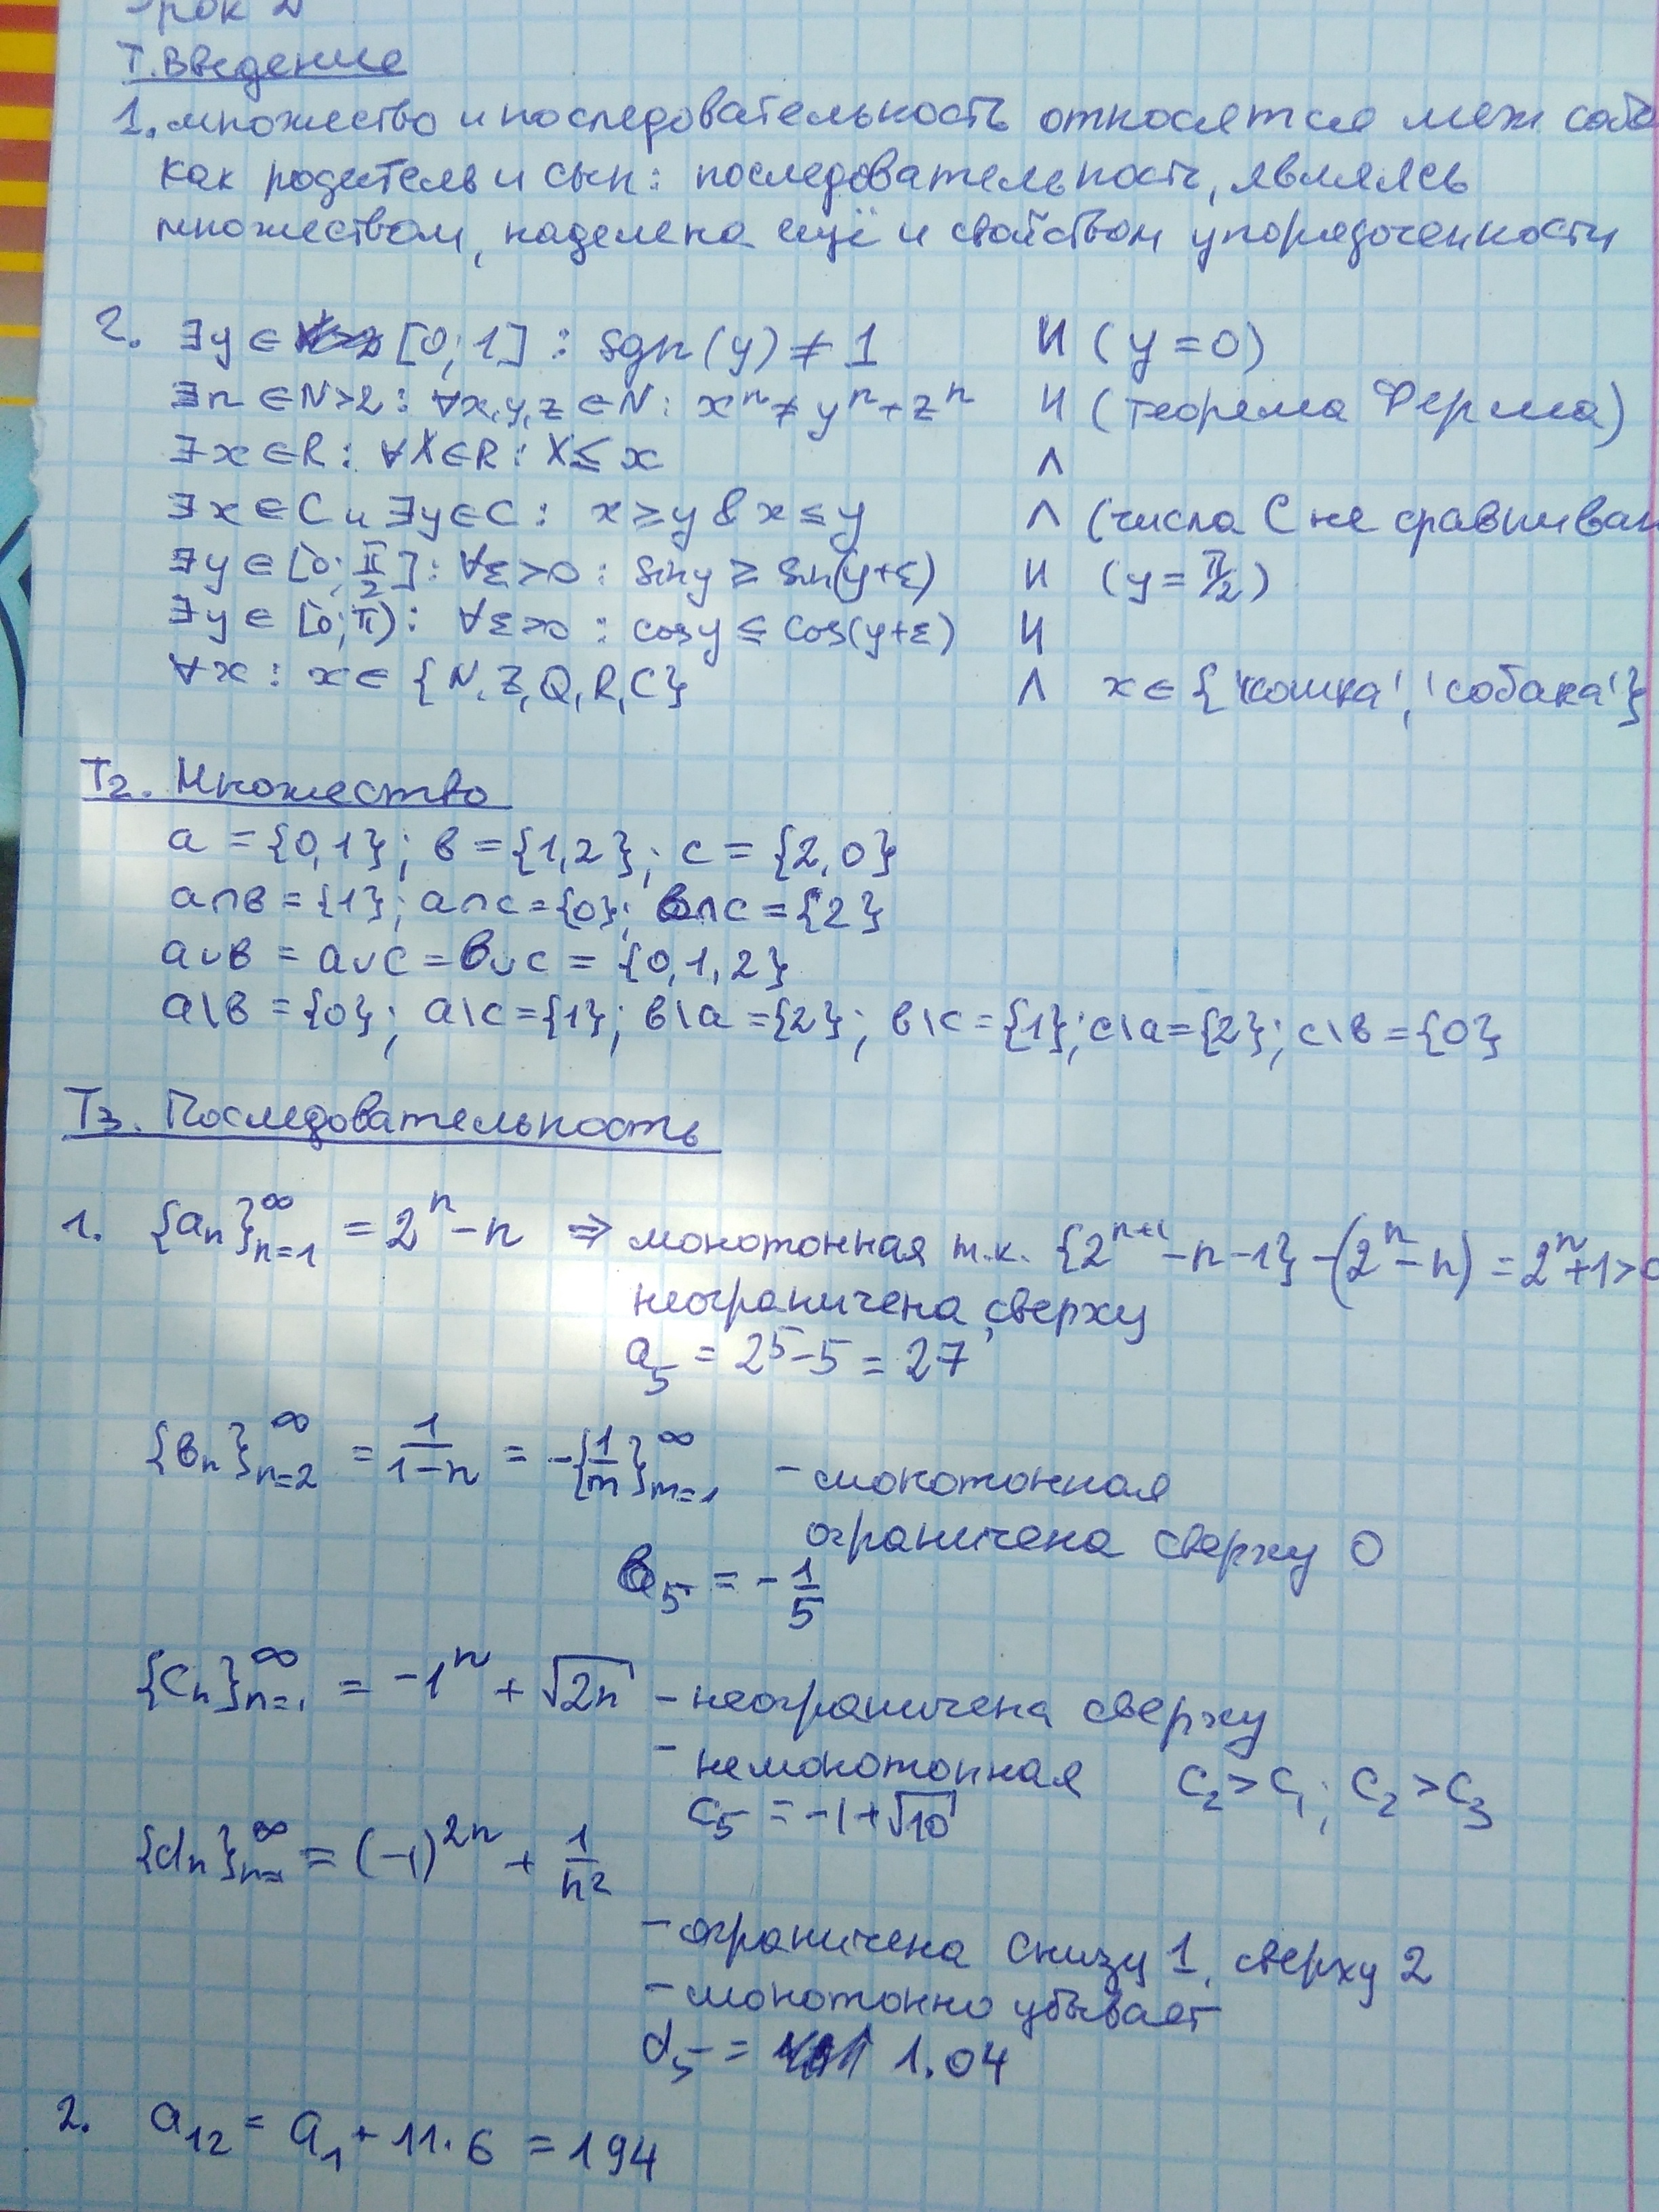 Урок 2
Т. Введение
1. множество и последовательность относятся меж собо
как родитель и сын: последовательность, являясь
множеством, наделена ещё и свойством упорядоченности
2. ∃y ∈ [0; 1] : sgn(y) ≠ 1 И (y = 0)
∃n ∈ N>2 : ∀x,y,z ∈ N : xⁿ ≠ yⁿ + zⁿ И (теорема Ферма)
∃x ∈ R : ∀X ∈ R : X ≤ x Л
∃x ∈ C и ∃y ∈ C : x ≥ y & x ≤ y Л (числа C не сравниван
∃y ∈ [0; π/2] : ∀ε > 0 : sin y ≥ sin(y+ε) И (y = π/2)
∃y ∈ [0; π) : ∀ε > 0 : cos y ≤ cos(y+ε) И
∀x : x ∈ {N, Z, Q, R, C} Л x ∈ {'кошка', 'собака'}
Т2. Множество
a = {0,1}; в = {1,2}; c = {2,0}
a∩в = {1}; a∩c = {0}; в∩c = {2}
a∪в = a∪c = в∪c = {0,1,2}
a\в = {0}; a\c = {1}; в\a = {2}; в\c = {1}; c\a = {2}; c\в = {0}
Т3. Последовательность
1. {aₙ}ₙ₌₁^∞ = 2ⁿ − n ⇒ монотонная т.к. {2ⁿ⁺¹ − n − 1} − (2ⁿ − n) = 2ⁿ + 1 > 0
неограничена сверху
a₅ = 2⁵ − 5 = 27
{вₙ}ₙ₌₂^∞ = 1/(1−n) = −{1/m}ₘ₌₁^∞ – монотонная
ограничена сверху 0
в₅ = −1/5
{cₙ}ₙ₌₁^∞ = −1ⁿ + √2n – неограничена сверху
– немонотонная c₂ > c₁; c₂ > c₃
c₅ = −1 + √10
{dₙ}ₙ₌^∞ = (−1)²ⁿ + 1/n²
– ограничена снизу 1, сверху 2
– монотонно убывает
d₅ = 1.04
2. a₁₂ = a₁ + 11·6 = 194